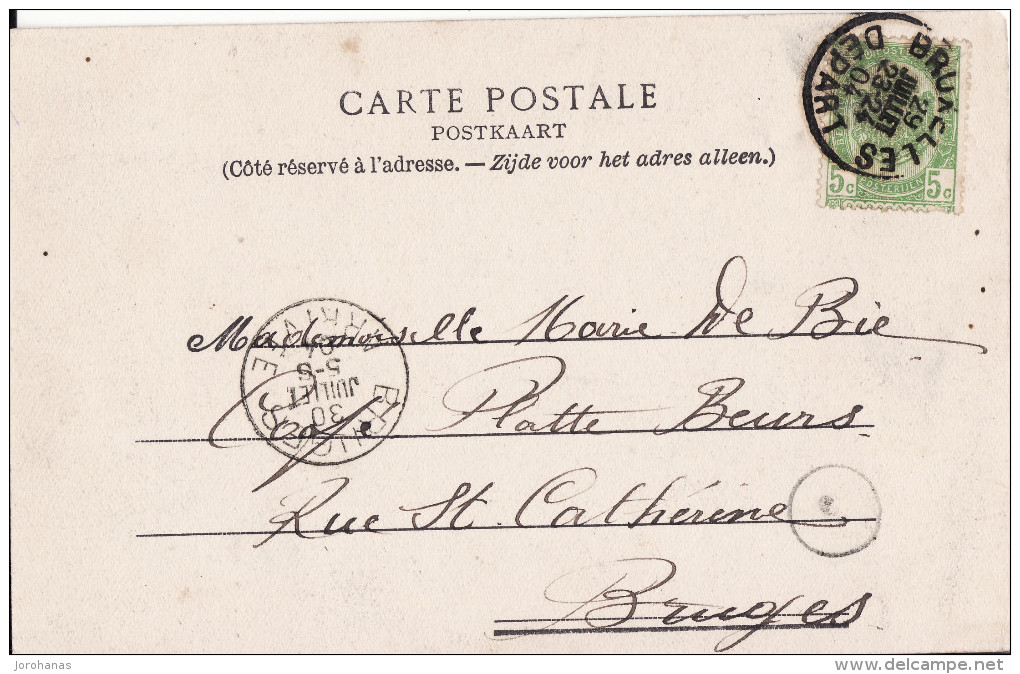 CARTE POSTALE
POSTKAART
(Côté réservé à l'adresse. — Zijde voor het adres alleen.)
BRUXELLES
29
JUILLET
04
DEPART
5c 5c
POSTERIJEN
Mademoiselle Marie De Bie
Café Platte Beurs
Rue St. Cathérine
Bruges
BRUGES
30
JUILLET
5-S
04
ARRIVÉE
Jorohanas
delcampe.net